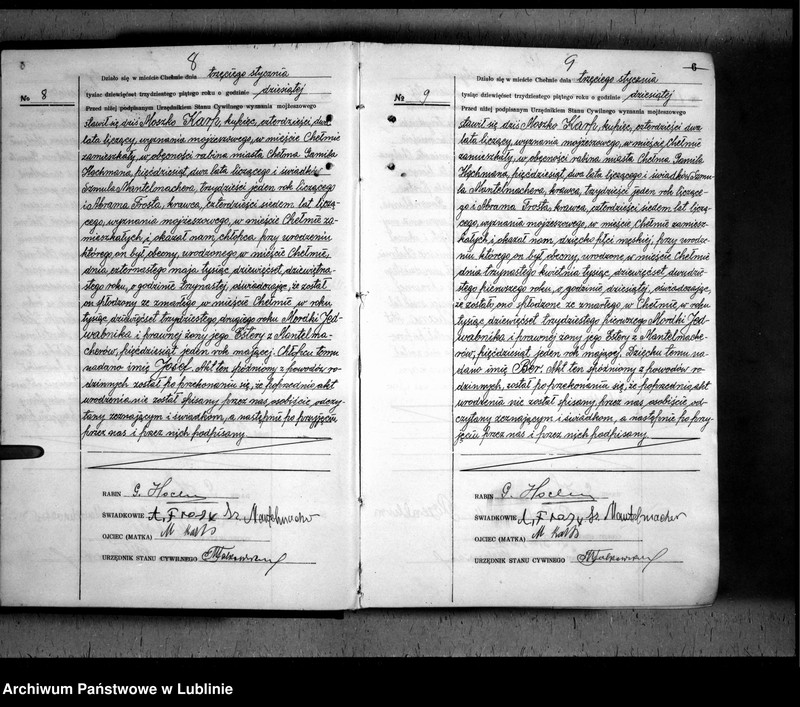 8
8
№ 8
Działo się w mieście Chełmie dnia trzeciego stycznia
tysiąc dziewięćset trzydziestego piątego roku o godzinie dziesiątej
Przed niżej podpisanym Urzędnikiem Stanu Cywilnego wyznania mojżeszowego
stawił się dziś Moszko Karp, kupiec, czterdzieści dwa
lata liczący, wyznania mojżeszowego, w mieście Chełmie
zamieszkały, w obecności rabina miasta Chełma Gamila
Hochmana, pięćdziesiąt dwa lata liczącego i świadków
Szmula Mantelmachera, trzydzieści jeden rok liczącego
i Abrama Frosta, krawca, czterdzieści siedem lat liczą-
cego, wyznania mojżeszowego, w mieście Chełmie za-
mieszkałych, i okazał nam, chłopca przy urodzeniu
którego on był obecny, urodzonego w mieście Chełmie,
dnia czternastego maja tysiąc, dziewięćset, dziewiętna-
stego roku, o godzinie trzynastej, oświadczając, że został
on spłodzony ze zmarłego w mieście Chełmie w roku
tysiąc, dziewięćset trzydziestego, drugiego roku Mordki Jed-
wabnika i prawnej żony jego Estery z Mantelma-
cherów, pięćdziesiąt jeden rok mającej. Chłopcu temu
nadano imię Josef. Akt ten spóźniony z powodów ro-
dzinnych został po przekonaniu się, że poprzednio akt
urodzenia nie został spisany, przez nas, osobiście odczy-
tany zeznającym i świadkom, a następnie po przyjęciu
przez nas i przez nich podpisany
RABIN G. Hochm
ŚWIADKOWIE A. Frost Sz. Mantelmacher
OJCIEC (MATKA) M Karp
URZĘDNIK STANU CYWILNEGO
9
6
№ 9
Działo się w mieście Chełmie dnia trzeciego stycznia
tysiąc dziewięćset trzydziestego piątego roku o godzinie dziesiątej
Przed niżej podpisanym Urzędnikiem Stanu Cywilnego wyznania mojżeszowego
stawił się dziś Moszko Karp, kupiec, czterdzieści dwa
lata liczący, wyznania mojżeszowego, w mieście Chełmie
zamieszkały, w obecności rabina miasta Chełma Gamila
Hochmana, pięćdziesiąt dwa lata liczącego i świadków Szmu-
la Mantelmachera, krawca, trzydzieści jeden rok liczące-
go i Abrama Frosta, krawca, czterdzieści siedem lat liczą-
cego, wyznania mojżeszowego, w mieście Chełmie zamiesz-
kałych i okazał nam, dziecko płci męskiej, przy urodze-
niu którego on był obecny, urodzone w mieście Chełmie
dnia trzynastego kwietnia tysiąc, dziewięćset, dwudzie-
stego pierwszego roku, o godzinie dziesiątej, oświadczając,
że zostało ono spłodzone ze zmarłego w Chełmie w roku
tysiąc, dziewięćset trzydziestego pierwszego Mordki Jed-
wabnika i prawnej żony jego Estery z Mantelmache-
rów, pięćdziesiąt jeden rok mającej. Dziecku temu na-
dano imię Ber. Akt ten spóźniony z powodów ro-
dzinnych, został po przekonaniu się, że poprzednio akt
urodzenia nie został spisany, przez nas, osobiście od-
czytany zeznającym i świadkom, a następnie po przy-
jęciu przez nas i przez nich podpisany
RABIN G. Hochm
ŚWIADKOWIE A. Frost Sz. Mantelmacher
OJCIEC (MATKA) M Karp
URZĘDNIK STANU CYWILNEGO
Archiwum Państwowe w Lublinie